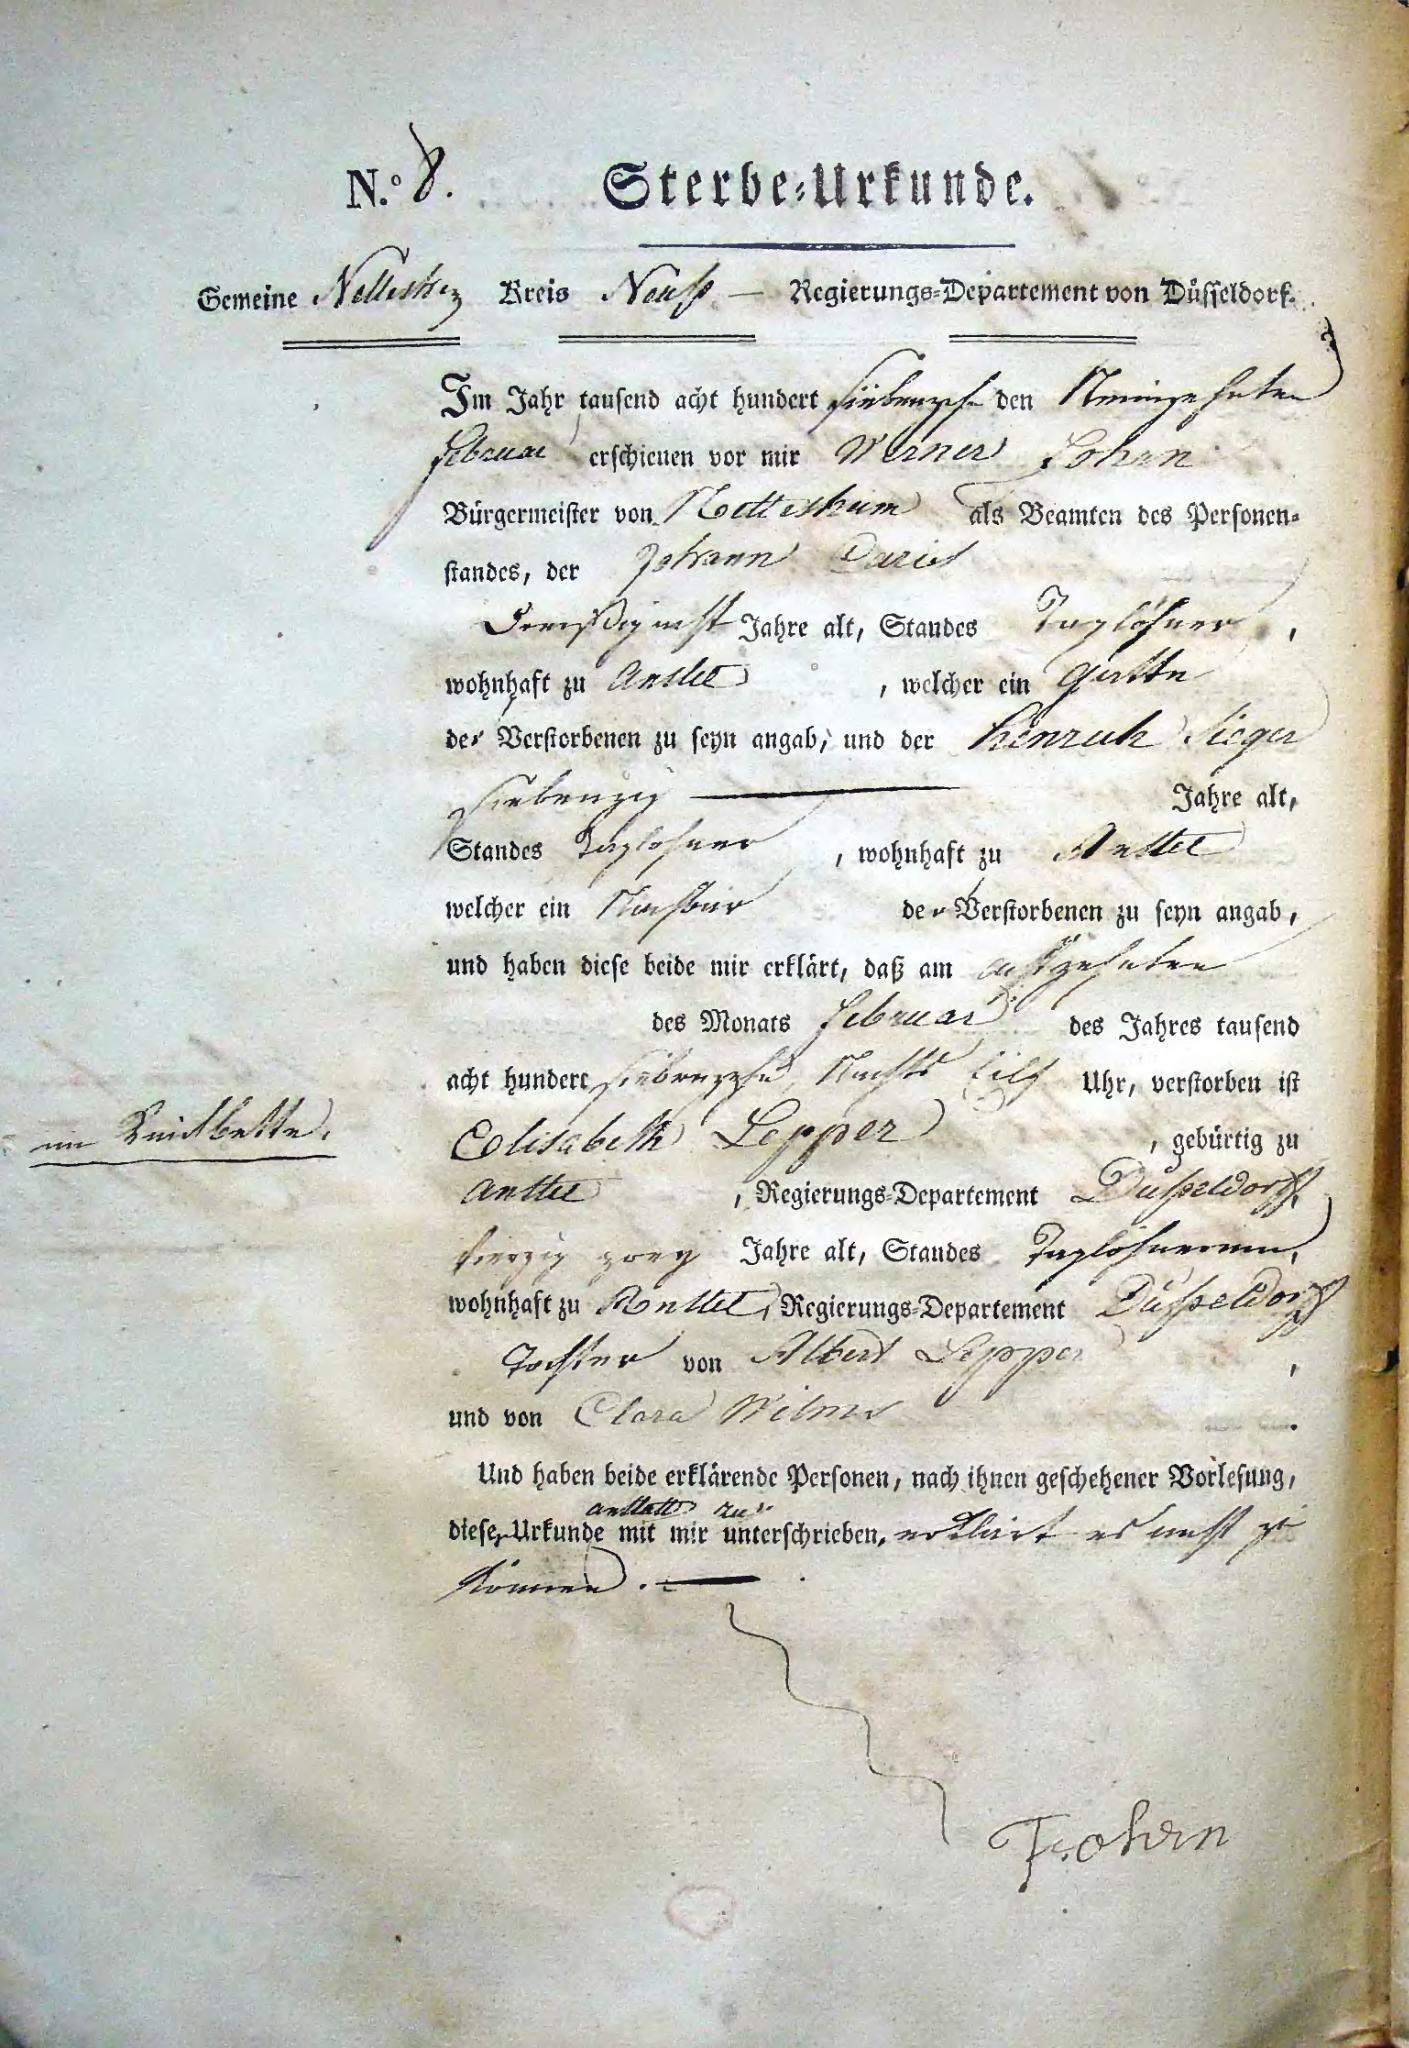 N.o 8. Sterbe-Urkunde.
Gemeine Kreis Neuß — Regierungs-Departement von Düsseldorf.
Im Jahr tausend acht hundert siebenzehn den Neunzehnten
Februar erschienen vor mir Werner
Bürgermeister von Nettesheim als Beamten des Personen-
standes, der Johann
Dreißig acht Jahre alt, Standes Taglöhner,
wohnhaft zu Anstel, welcher ein Gatte
der Verstorbenen zu seyn angab, und der Henrich Sieger
siebenzig — Jahre alt,
Standes Taglöhner, wohnhaft zu Anstel
welcher ein Nachbar der Verstorbenen zu seyn angab,
und haben diese beide mir erklärt, daß am achtzehnten
des Monats Februar des Jahres tausend
acht hundert siebenzehn, Nachts Eilf Uhr, verstorben ist
im Kindbette.
Elisabeth Lepper, gebürtig zu
Anstel, Regierungs-Departement Düsseldorf,
vierzig zwey Jahre alt, Standes Taglöhnerinn,
wohnhaft zu Anstel, Regierungs-Departement Düsseldorf
Tochter von Albert Lepper,
und von Clara Wilms.
Und haben beide erklärende Personen, nach ihnen geschehener Vorlesung,
anstatt zu
diese Urkunde mit mir unterschrieben, erklärt es nicht zu
können. —